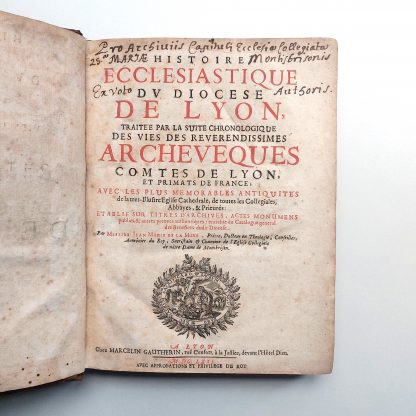 Pro Archiviis Capituli Ecclesiæ Collegiatæ
MARIÆ Montisbrisonis
HISTOIRE
ECCLESIASTIQUE
Ex voto Authoris.
DV DIOCESE
DE LYON,
TRAITE'E PAR LA SUITE CHRONOLOGIQUE
DES VIES DES REVERENDISSIMES
ARCHEVEQUES
COMTES DE LYON,
ET PRIMATS DE FRANCE;
AVEC LES PLUS MEMORABLES ANTIQUITES
de la tres-Illustre Eglise Cathedrale, de toutes les Collegiales,
Abbayes, & Prieurés:
ETABLIE SUR TITRES D'ARCHIVES, ACTES MONUMENS
Par MESSIRE JEAN MARIE DE LA MURE, Prêtre, Docteur en Theologie, Conseiller,
Aumônier du Roy, Sacristain & Chanoine de l'Eglise Collegiale
de nôtre Dame de Montbrison.
A LYON,
Chez MARCELLIN GAUTHERIN, ruë Confort, à la Justice, devant l'Hôtel Dieu.
AVEC APPROBATIONS ET PRIVILEGE DU ROY.